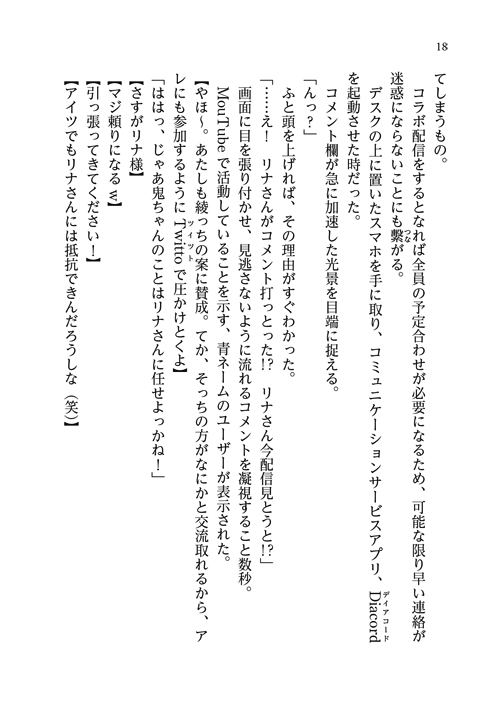 18
てしまうもの。
　コラボ配信をするとなれば全員の予定合わせが必要になるため、可能な限り早い連絡が
迷惑にならないことにも繫がる。
　デスクの上に置いたスマホを手に取り、コミュニケーションサービスアプリ、Diacord
を起動させた時だった。
　コメント欄が急に加速した光景を目端に捉える。
「んっ？」
　ふと頭を上げれば、その理由がすぐわかった。
「……え！　リナさんがコメント打っとった!?　リナさん今配信見とうと!?」
　画面に目を張り付かせ、見逃さないように流れるコメントを凝視すること数秒。
　MouTubeで活動していることを示す、青ネームのユーザーが表示された。
【やほ〜。あたしも綾っちの案に賛成。てか、そっちの方がなにかと交流取れるから、ア
レにも参加するようにTwittoで圧かけとくよ】
「ははっ、じゃあ鬼ちゃんのことはリナさんに任せよっかね！」
【さすがリナ様】
【マジ頼りになるw】
【引っ張ってきてください！】
【アイツでもリナさんには抵抗できんだろうしな（笑）】